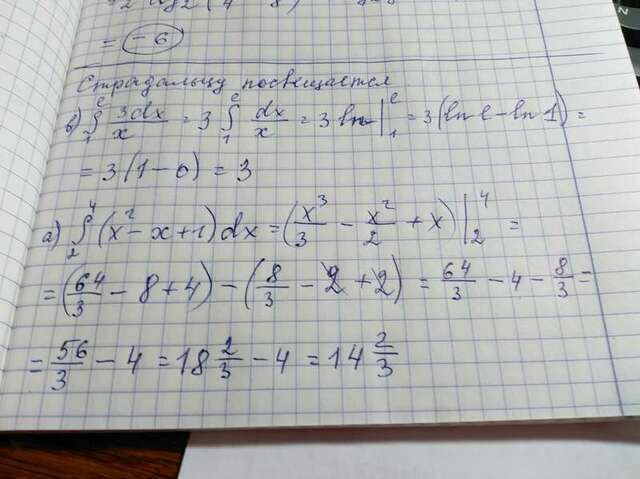 = -6
Страдальцу посвещается
в) ∫₁ᵉ 3dx/x = 3 ∫₁ᵉ dx/x = 3 ln |₁ᵉ = 3(ln e - ln 1) =
= 3(1-0) = 3
а) ∫₂⁴ (x² - x + 1) dx = (x³/3 - x²/2 + x) |₂⁴ =
= (64/3 - 8 + 4) - (8/3 - 2 + 2) = 64/3 - 4 - 8/3 =
= 56/3 - 4 = 18 2/3 - 4 = 14 2/3